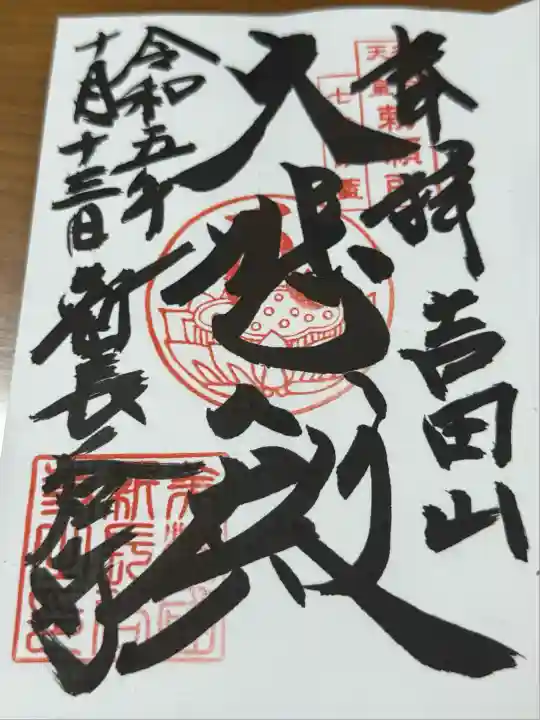 奉拝 吉田山
勅願所
大悲殿
令和五年
十月十三日
新長谷寺